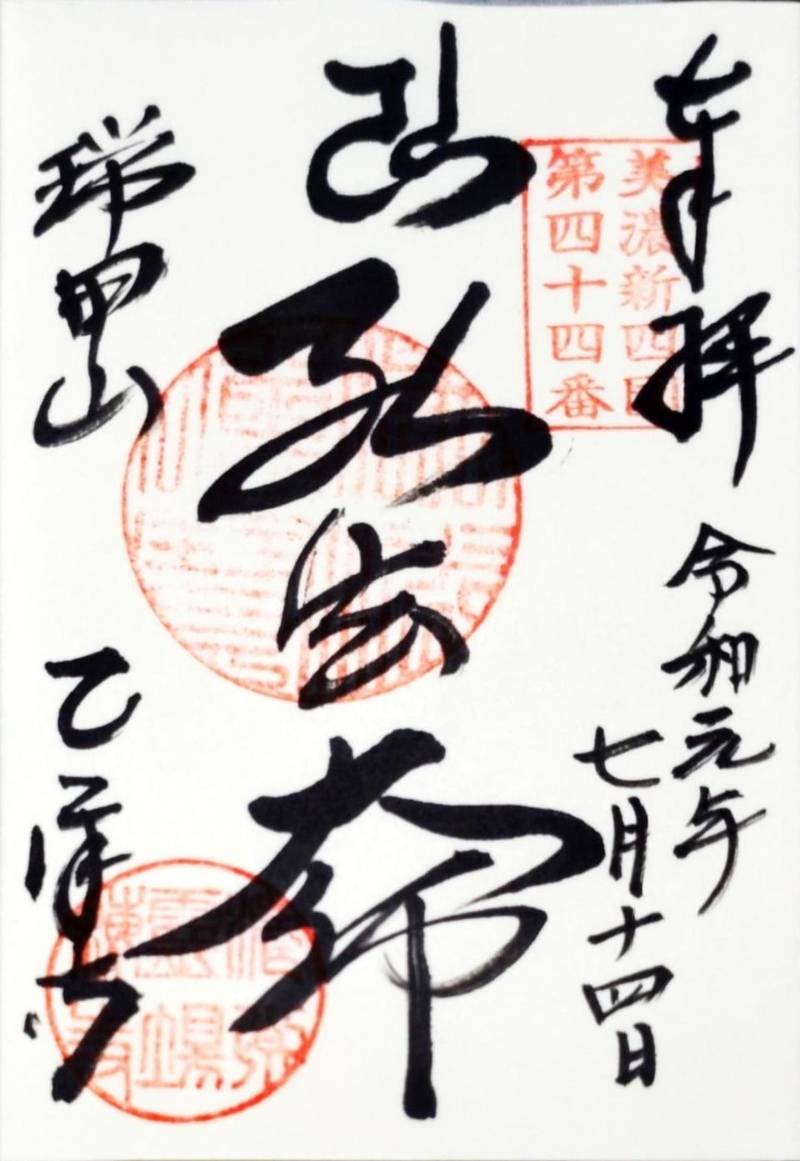 奉拝
令和元年
七月十四日
美濃新四国
第四十四番
弘法大師
瑞甲山
乙津寺